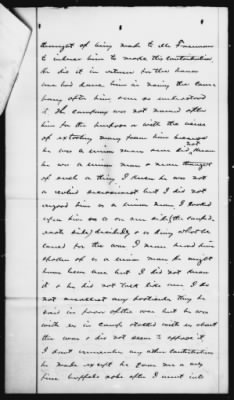 thought of being made to Mr Freeman
to induce him to made this contribution
he did it in return for the honor
we had done him in naming the Com-
pany after him as we understood
it. The company was not named after
him for the purpose or with the view
of extorting money from him because
he was a union man nor did not
he was a union man & never thought
of such a thing I knew he was not
a rabid secessionist but I did not
regard him as a union man. I looked
upon him as on our side (the confed-
erate side) decidedly & as doing what he
could for the war I never heard him
spoken of as a union man he might
have been one but I did not know
it & he did not talk like one. I do
not recollect any particular thing he
said in favor of the war but he was
with us in camp & talked with us about
the war & did not seem to oppose it
I dont remember any other contribution
he made except he gave me a very
fine buffalo robe after I went into